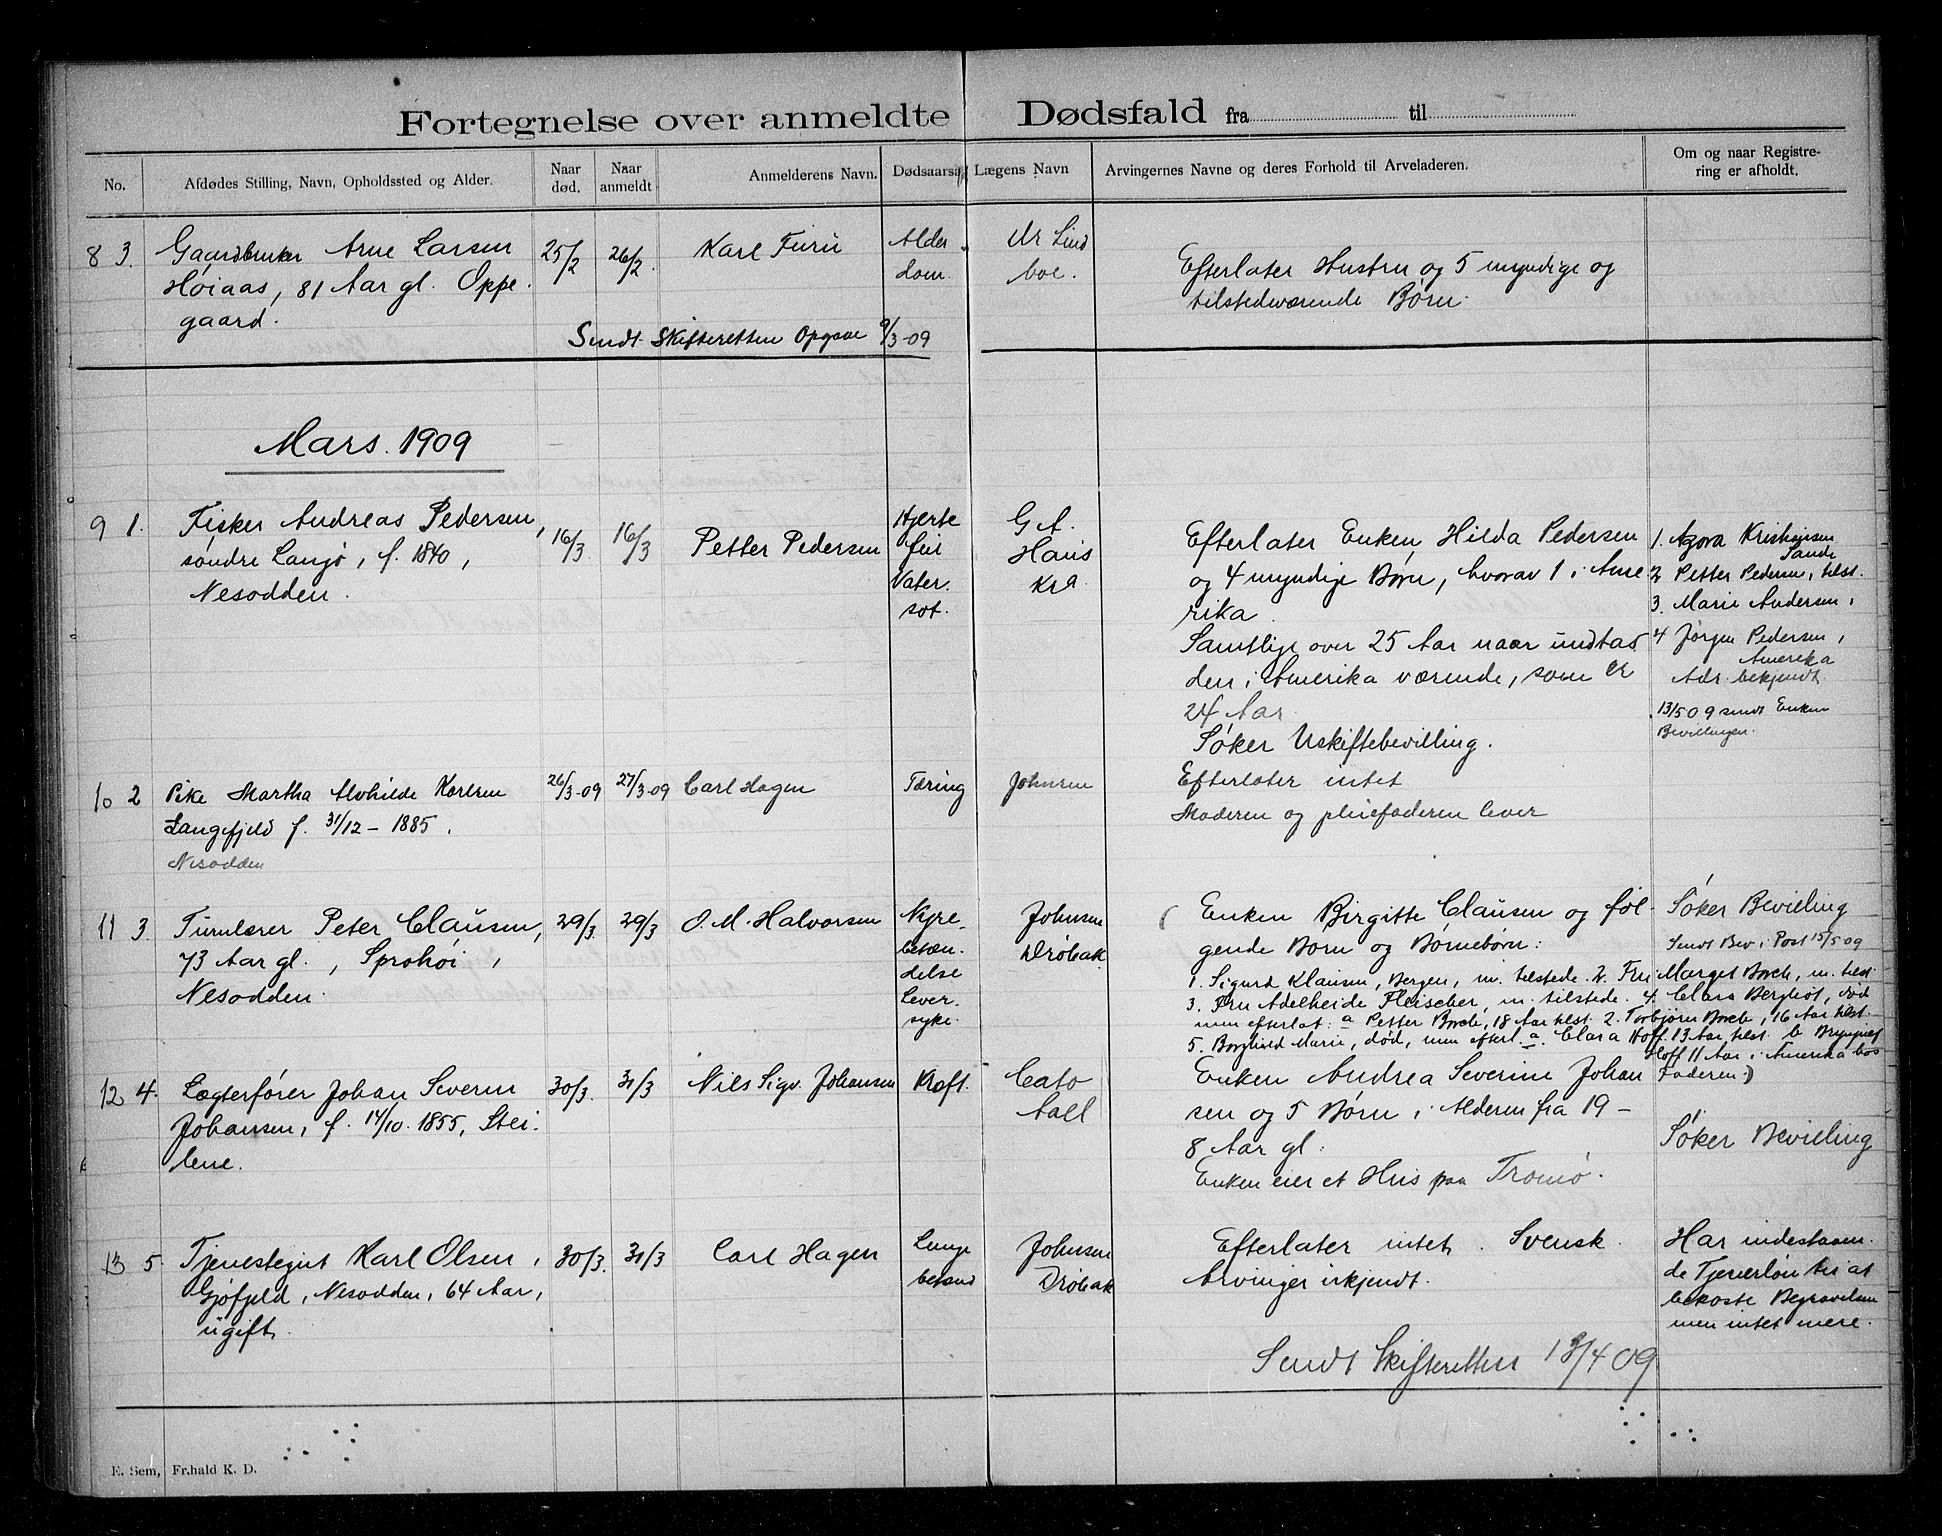 Fortegnelse over anmeldte Dødsfald fra til
No.
Afdødes Stilling, Navn, Opholdssted og Alder.
Naar død.
Naar anmeldt
Anmelderens Navn.
Dødsaarsag
Lægens Navn
Arvingernes Navne og deres Forhold til Arveladeren.
Om og naar Registrering er afholdt.
8 3.
Gaardbruker Arne Larsen
Høiaas, 81 Aar gl. Oppe
gaard.
25/2
26/2.
Karl Furu
Alder
dom.
Ur Lind
boe.
Efterlater Hustru og 5 myndige og
tilstedværende Børn.
Sendt Skifteretten Opgave 9/3-09
Mars. 1909
9 1.
Fisker Andreas Pedersen,
søndre Langø, f. 1840,
Nesodden.
16/3.
16/3
Petter Pedersen
Hjerte
feil
Vater.
sot.
G A.
Haus
Kra
Efterlater Enken Hilda Pedersen
og 4 myndige Børn, hvorav 1 i Ame
rika.
Samtlige over 25 Aar naar undtas
den i Amerika værende, som er
24 Aar.
Søker Uskiftebevilling.
1. Agora Kristiansen
Sande
2 Petter Pedersen, tilst.
3. Marie Andersen,
4 Jørgen Pedersen,
Amerika
Adr. bekjendt
13/5 09 sendt Enken
Bevillingen.
10 2
Pike Martha Alvhilde Karlsen
Langefjeld f. 31/12 - 1885.
Nesodden
26/3-09
27/3-09
Carl Hagen
Tæring
Johnsen
Efterlater intet
Moderen og pleiefaderen lever
11 3.
Turnlærer Peter Clausen,
73 Aar gl., Sprohøi,
Nesodden.
29/3.
29/3
O. M. Halvorsen
Nyre-
betæn-
delse
Lever.
syke.
Johnsen
Drøbak
Enken Birgitte Clausen og føl-
gende Børn og Børnebørn:
1. Sigurd Klausen, Bergen, m. tilstede. 2. Fru Marget Borch, m. tilst.
3. Fru Adelheide Fleischer, m. tilstede. 4. Clara Bergliot, død
men efterlat: a Petter Borch, 18 Aar tilst. 2. Torbjørn Borch, 16 Aar tilst.
5. Borghild Marie, død, men efterl. a. Clara Hoff 13 Aar, tilst. b
Hoff 11 Aar, i Amerika hos
Faderen:)
Søker Bevilling
Sendt Bev. i Post 15/5 09
12 4.
Lægterfører Johan Severin
Johansen, f. 14/10. 1855, Stei-
lene.
30/3.
31/3
Nils Sigv. Johansen
Kræft.
Cato
Aall
Enken Andrea Severine Johan
sen og 5 Børn i Alderen fra 19-
8 Aar gl.
Enken eier et Hus paa Tromø.
Søker Bevilling
13 5.
Tjenestegut Karl Olsen,
Gjøfjeld, Nesodden, 64 Aar,
ugift.
30/3.
31/3
Carl Hagen
Lunge
betænd
Johnsen
Drøbak
Efterlater intet. Svensk.
Arvinger ukjendt.
Har indestaaen-
de Tjenerløn til at
bekoste Begravelsen
men intet mere.
Sendt Skifteretten 13/4 09
E. Sem, Fr.hald K. D.